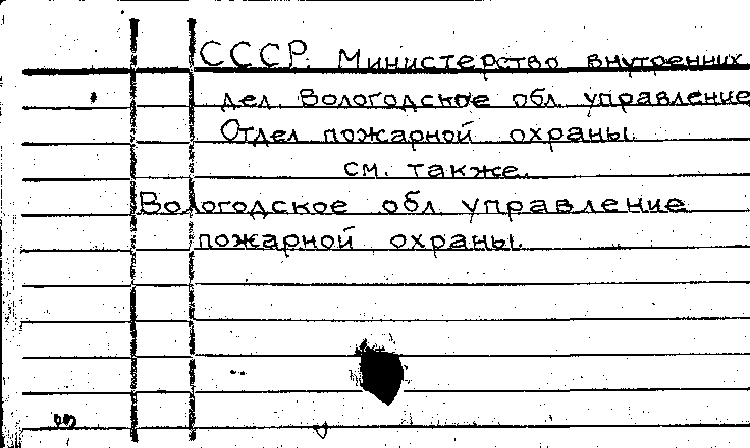 СССР. Министерство внутренних
дел. Вологодское обл. управление
Отдел пожарной охраны.
см. также.
Вологодское обл. управление
пожарной охраны.